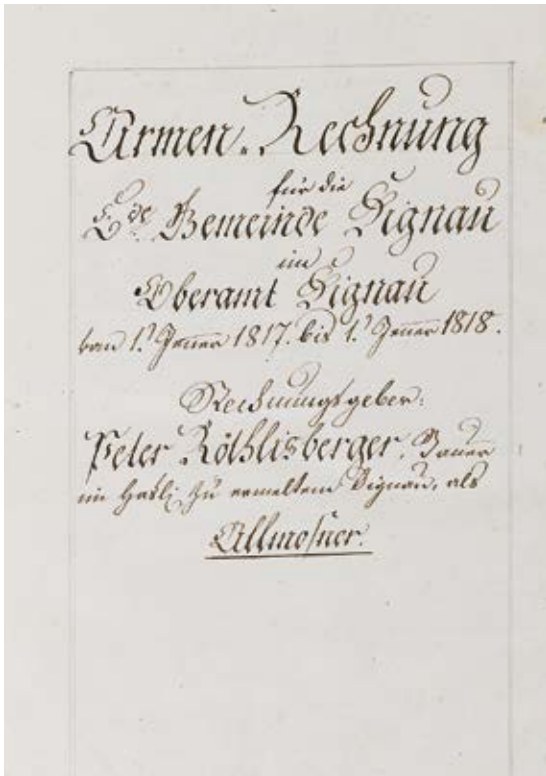 Armen-Rechnung
für die
E.de Gemeinde Signau
im
Oberamt Signau
von 1.t Jenner 1817. bis 1.t Jenner 1818.
Rechnungsgeber:
Peter Röthlisberger, Bauer
im Hasli zu ermeltem Signau, als
Allmosner.